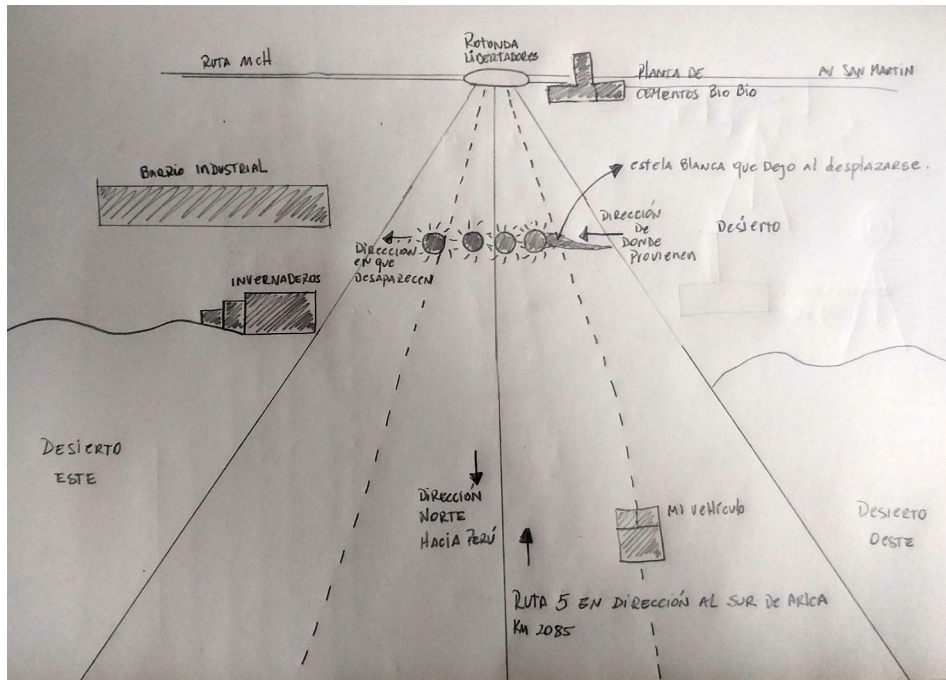 ROTONDA
LIBERTADORES
RUTA MCH
PLANTA DE
CEMENTOS BIO BIO
AV SAN MARTIN
BARRIO INDUSTRIAL
estela BLANCA que DEJO Al DESPLAZARSE.
DIRECCIÓN
DE
DONDE
PROVIENEN
Desierto
DIRECCIÓN
EN QUE
DESAPARECEN
INVERNADEROS
DESIERTO
ESTE
DIRECCIÓN
NORTE
HACIA PERÚ
MI VEHÍCULO
DESIERTO
OESTE
RUTA 5 EN DIRECCIÓN AL SUR DE ARICA
KM 2085